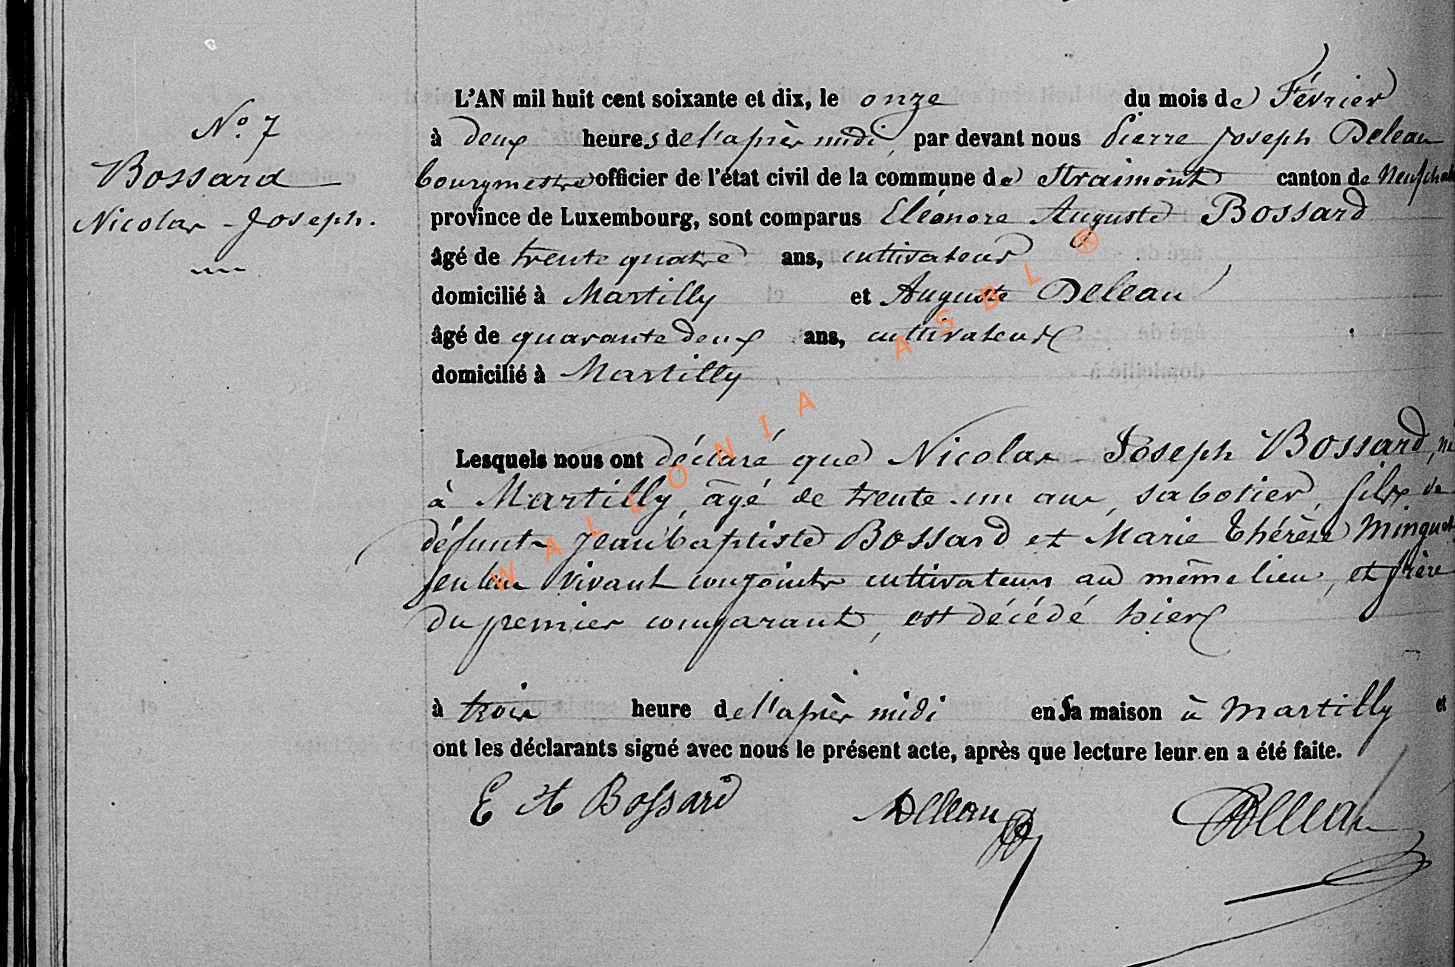 N.o 7
Bossard
Nicolas-Joseph.
L'AN mil huit cent soixante et dix, le onze du mois de Février
à deux heures de l'après midi, par devant nous Pierre Joseph Deleau
bourgmestre officier de l'état civil de la commune de Straimont canton de Neufchat
province de Luxembourg, sont comparus Eléonore Auguste Bossard
âgé de trente quatre ans, cultivateur
domicilié à Martilly et Auguste Deleau
âgé de quarante deux ans, cultivateur
domicilié à Martilly
Lesquels nous ont déclaré que Nicolas Joseph Bossard, né
à Martilly, âgé de trente un ans, sabotier, fils de
défunts Jean baptiste Bossard et Marie Thérèse Minguet
vivant conjoints cultivateurs au même lieu, et frère
du premier comparant, est décédé hier
à trois heure de l'après midi en sa maison à Martilly et
ont les déclarants signé avec nous le présent acte, après que lecture leur en a été faite.
E A Bossard ADeleau PJDeleau
WALLONIA ASBL ®